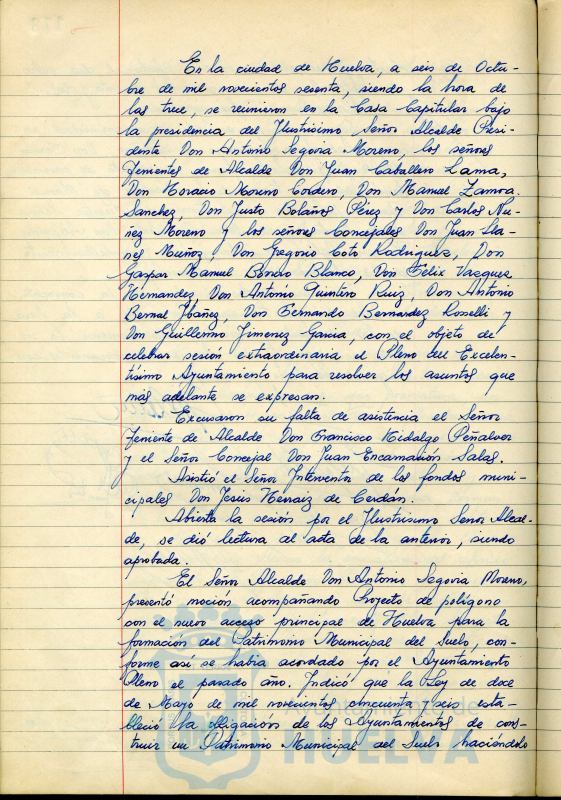 En la ciudad de Huelva, a seis de Octu-
bre de mil novecientos sesenta, siendo la hora de
las trece, se reunieron en la Casa Capitular bajo
la presidencia del Ilustrísimo Señor Alcalde Presi-
dente Don Antonio Segovia Moreno, los señores
Tenientes de Alcalde Don Juan Caballero Lama,
Don Horacio Moreno Cordero, Don Manuel Zamora
Sanchez, Don Justo Bolaños Pérez y Don Carlos Nu-
ñez Moreno y los señores Concejales Don Juan Lla-
nes Muñoz, Don Gregorio Coto Rodriguez, Don
Gaspar Manuel Blanco, Don Félix Vazquez
Hernandez, Don Antonio Quintero Ruiz, Don Antonio
Bernal Ibañez, Don Fernando Bernardez Roselli y
Don Guillermo Jimenez Garcia, con el objeto de
celebrar sesión extraordinaria el Pleno del Excelen-
tísimo Ayuntamiento para resolver los asuntos que
más adelante se expresan.
Excusaron su falta de asistencia el Señor
Teniente de Alcalde Don Francisco Hidalgo Peñalver
y el Señor Concejal Don Juan Encarnación Salas.
Asistió el Señor Interventor de los fondos muni-
cipales Don Jesus Herraiz de Cerdán.
Abierta la sesión por el Ilustrísimo Señor Alcal-
de, se dió lectura al acta de la anterior, siendo
aprobada.
El Señor Alcalde Don Antonio Segovia Moreno,
presentó moción acompañando Proyecto de polígono
con el nuevo acceso principal de Huelva para la
formación del Patrimonio Municipal del Suelo, con-
forme así se habia acordado por el Ayuntamiento
Pleno el pasado año. Indicó que la Ley de doce
de Mayo de mil novecientos cincuenta y seis esta-
bleció la obligación de los Ayuntamientos de cons-
truir un Patrimonio Municipal del Suelo haciéndolo
HUELVA